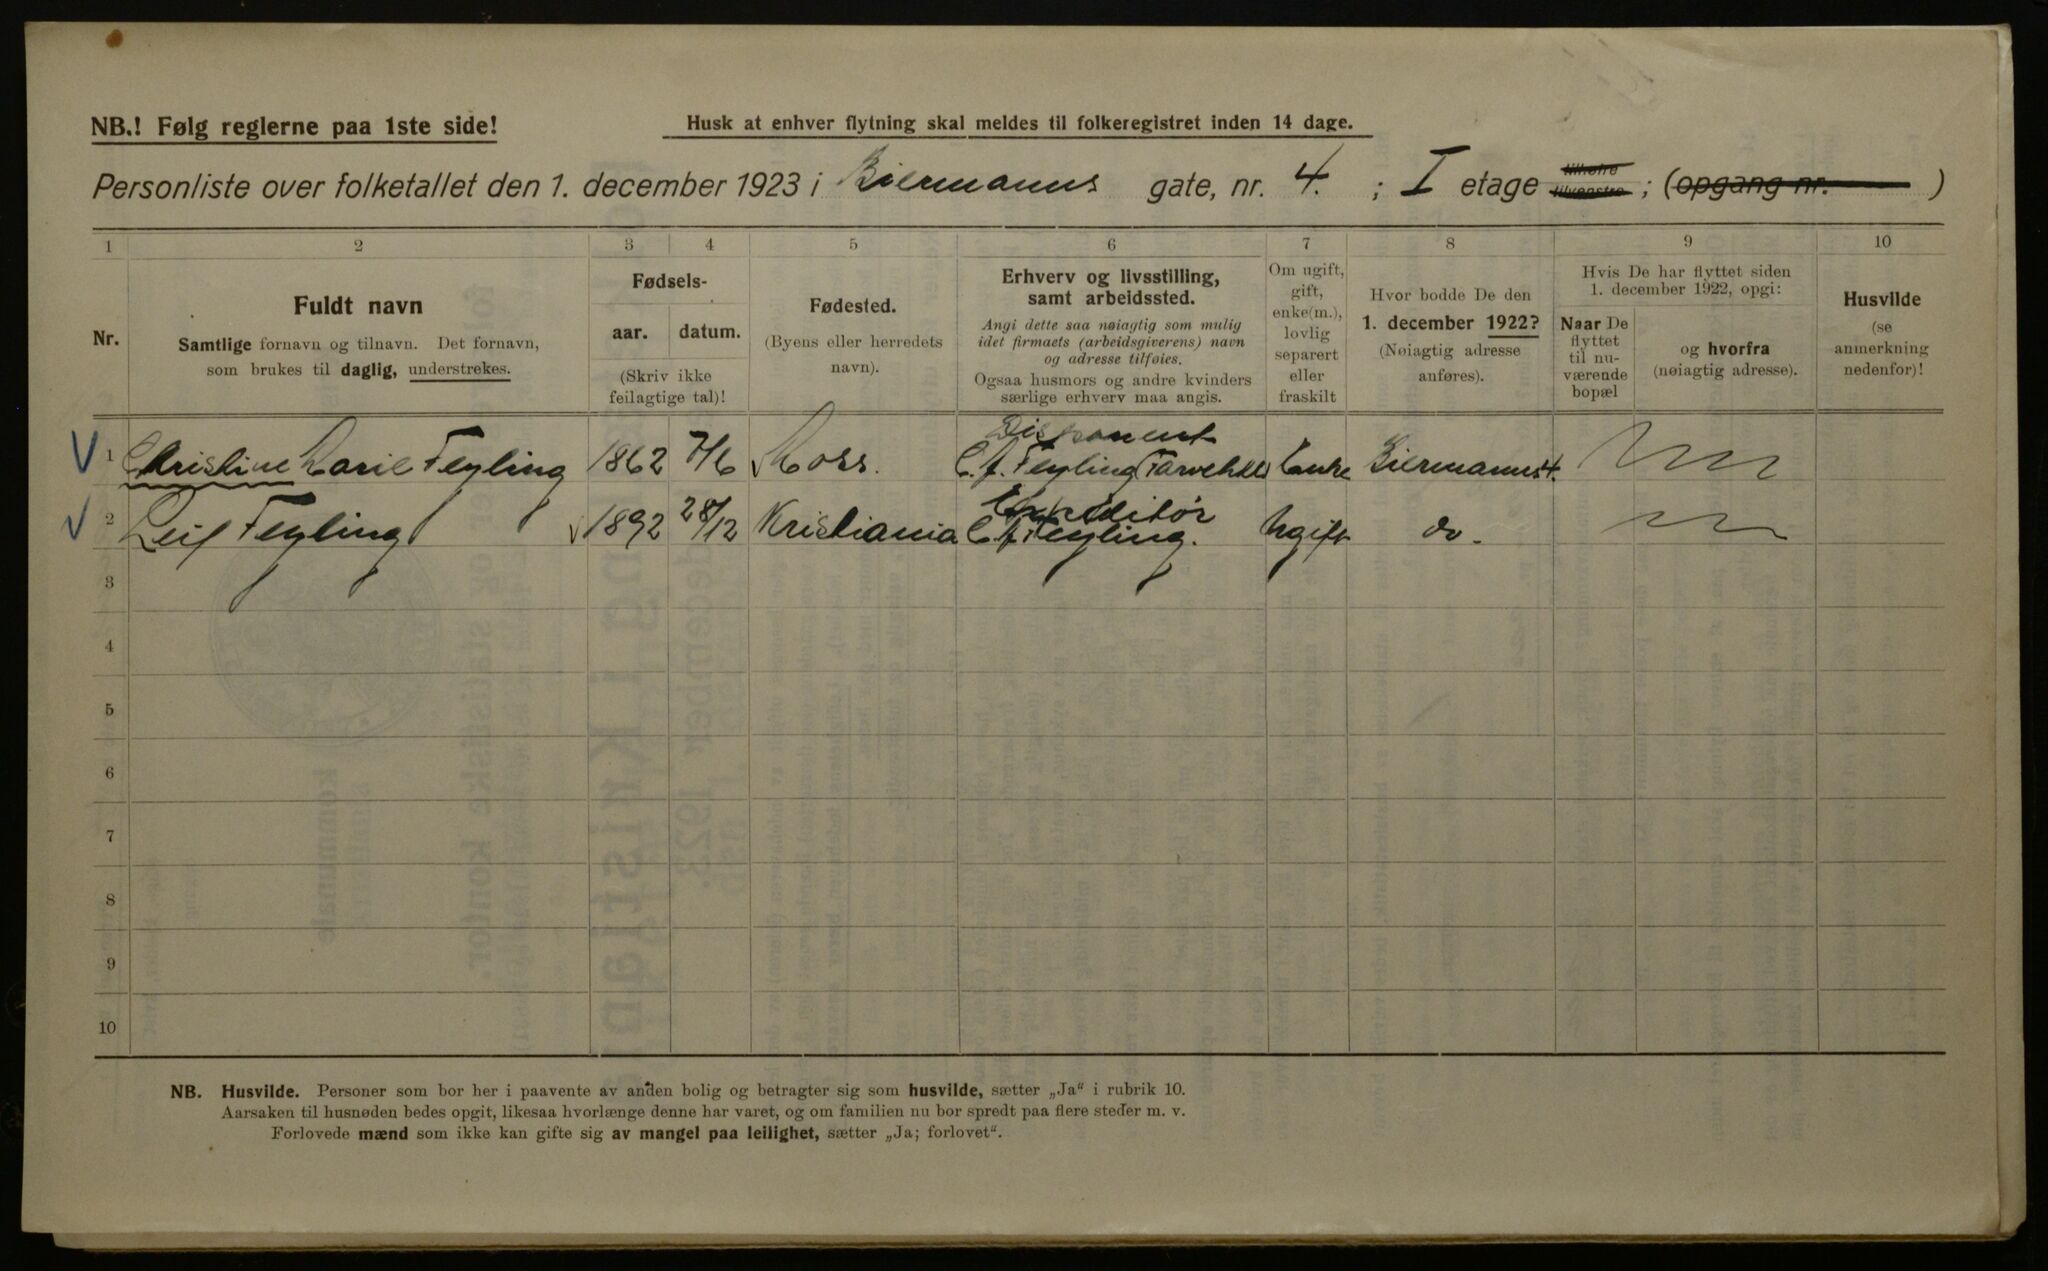 NB.! Følg reglerne paa 1ste side!
Husk at enhver flytning skal meldes til folkeregistret inden 14 dage.
Personliste over folketallet den 1. december 1923 i Biermanns gate, nr. 4. ; I etage tilhøire tilvenstre ; (opgang nr. )
1 2 3 4 5 6 7 8 9 10
Nr.
Fuldt navn
Samtlige fornavn og tilnavn. Det fornavn,
som brukes til daglig, understrekes.
Fødsels-
aar. datum.
(Skriv ikke
feilagtige tal)!
Fødested.
(Byens eller herredets
navn).
Erhverv og livsstilling,
samt arbeidssted.
Angi dette saa nøiagtig som mulig
idet firmaets (arbeidsgiverens) navn
og adresse tilføies.
Ogsaa husmors og andre kvinders
særlige erhverv maa angis.
Om ugift,
gift,
enke(m.),
lovlig
separert
eller
fraskilt
Hvor bodde De den
1. december 1922?
(Nøiagtig adresse
anføres).
Hvis De har flyttet siden
1. december 1922, opgi:
Naar De
flyttet
til nu-
værende
bopæl
og hvorfra
(nøiagtig adresse).
Husvilde
(se
anmerkning
nedenfor)!
Disponent
1 Christine Marie Feyling 1862 7/6 Moss. C. F. Feyling Enke Biermannsg. 4.
Expeditør
2 Leif Feyling 1892 28/12 Kristiania C. F. Feyling. Ugift do.
3
4
5
6
7
8
9
10
NB. Husvilde. Personer som bor her i paavente av anden bolig og betragter sig som husvilde, sætter „Ja“ i rubrik 10.
Aarsaken til husnøden bedes opgit, likesaa hvorlænge denne har varet, og om familien nu bor spredt paa flere steder m. v.
Forlovede mænd som ikke kan gifte sig av mangel paa leilighet, sætter „Ja; forlovet“.